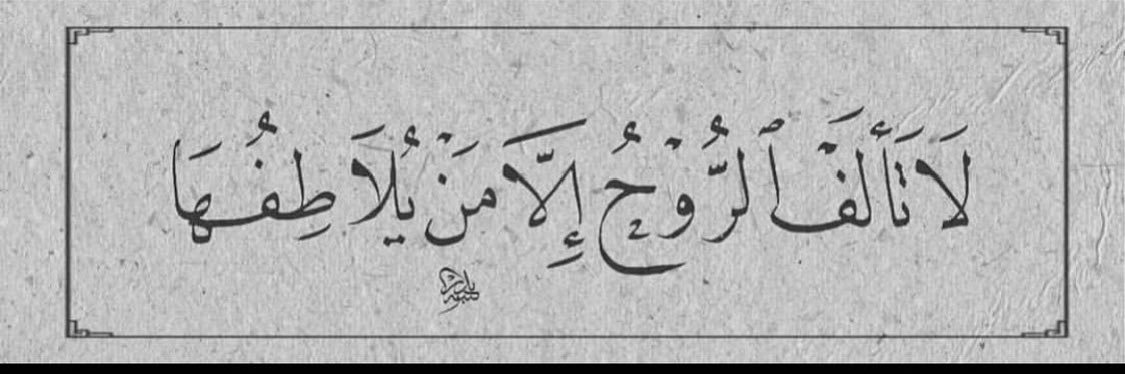 لَا تَأْلَفُ ٱلرُّوْحُ إِلَّا مَنْ يُلَاطِفُهَا